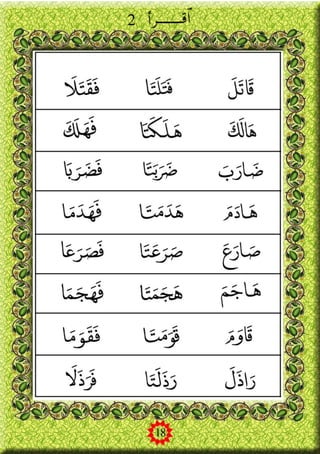 أقـــرأ 2
قَاتَلَ قَتَلَتَا فَقَتَلَا
هَالَكَ هَلَكَتَا فَهَلَكَ
ضَارَبَ ضَرَبَتَا فَضَرَبَا
هَادَمَ هَدَمَتَا فَهَدَمَا
صَارَعَ صَرَعَتَا فَصَرَعَا
هَاجَمَ هَجَمَتَا فَهَجَمَا
قَاوَمَ قَوَمَتَا فَقَوَمَا
رَاذَلَ رَذَلَتَا فَرَذَلَا
18